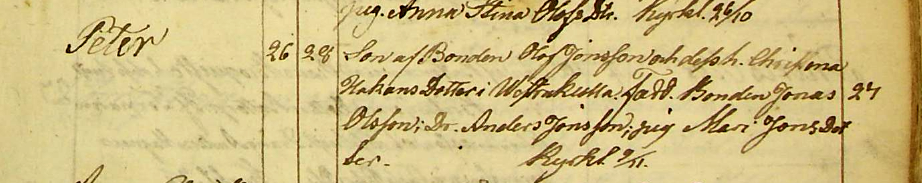 Pig. Anna Stina Olofs Dtr. Kyrkt. 26/10
Peter 26 28 Son af Bonden Olof Jönsson och dess h. Christina
Håkans Dotter i Wästrakulla. Fadd. Bonden Jonas 27
Olsson; Dr. Anders Jönsson; pig Mari Jons Dot
ter. Kyrkt